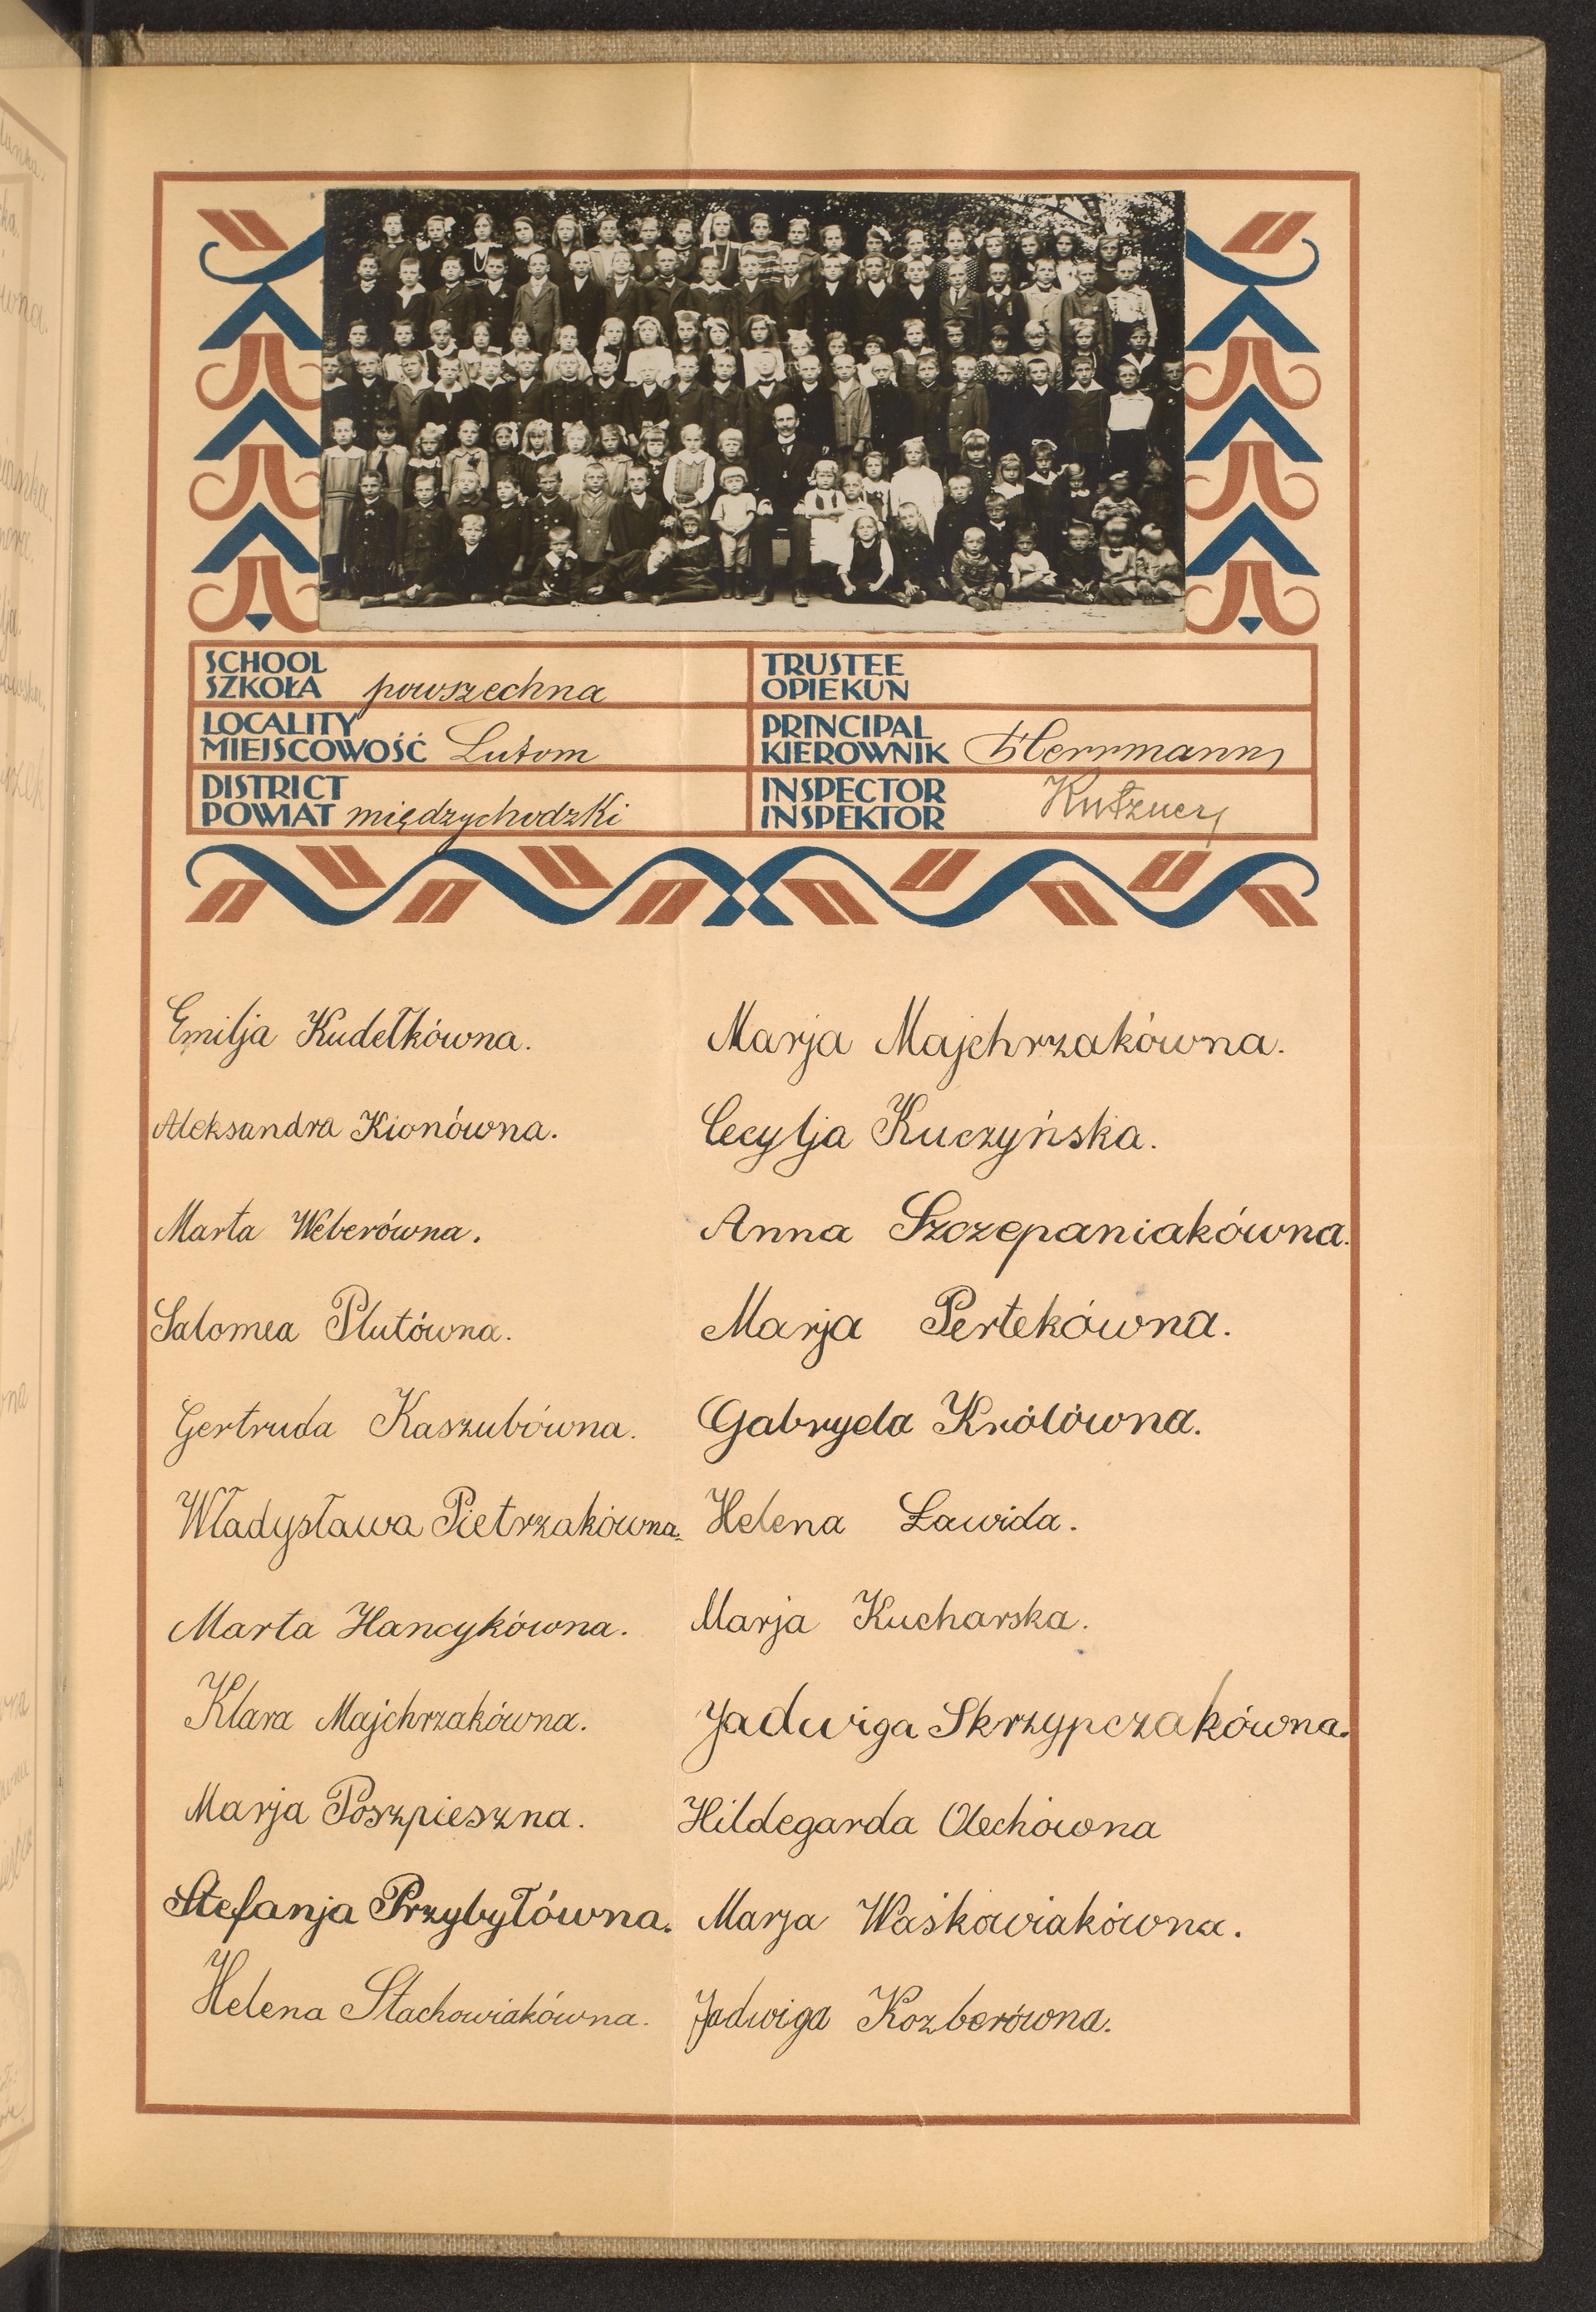 SCHOOL
SZKOŁA powszechna
LOCALITY
MIEJSCOWOŚĆ Lutom
DISTRICT
POWIAT międzychodzki
TRUSTEE
OPIEKUN
PRINCIPAL
KIEROWNIK Herrmann
INSPECTOR
INSPEKTOR Kutzner
Emilja Kudełkówna.
Aleksandra Kionówna.
Marta Weberówna.
Salomea Plutówna.
Gertruda Kaszubówna.
Władysława Pietrzakówna.
Marta Hancykówna.
Klara Majchrzakówna.
Marja Poszpieszna.
Stefanja Przybyłówna.
Helena Stachowiakówna.
Marja Majchrzakówna.
Cecylja Kuczyńska.
Anna Szczepaniakówna.
Marja Pertekówna.
Gabryela Królówna.
Helena Ławida.
Marja Kucharska.
Jadwiga Skrzypczakówna.
Hildegarda Olechówna
Marja Waśkowiakówna.
Jadwiga Kozberówna.